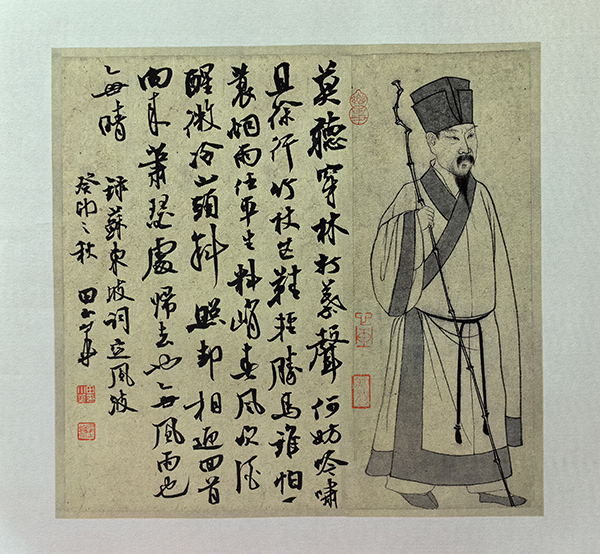 莫聽穿林打葉聲何妨吟嘯
且徐行竹杖芒鞋輕勝馬誰怕一
蓑烟雨任平生料峭春風吹酒
醒微冷山頭斜照却相迎回首
向来蕭瑟處歸去也無風雨也
無晴
錄蘇東坡詞定風波
癸卯之秋 田